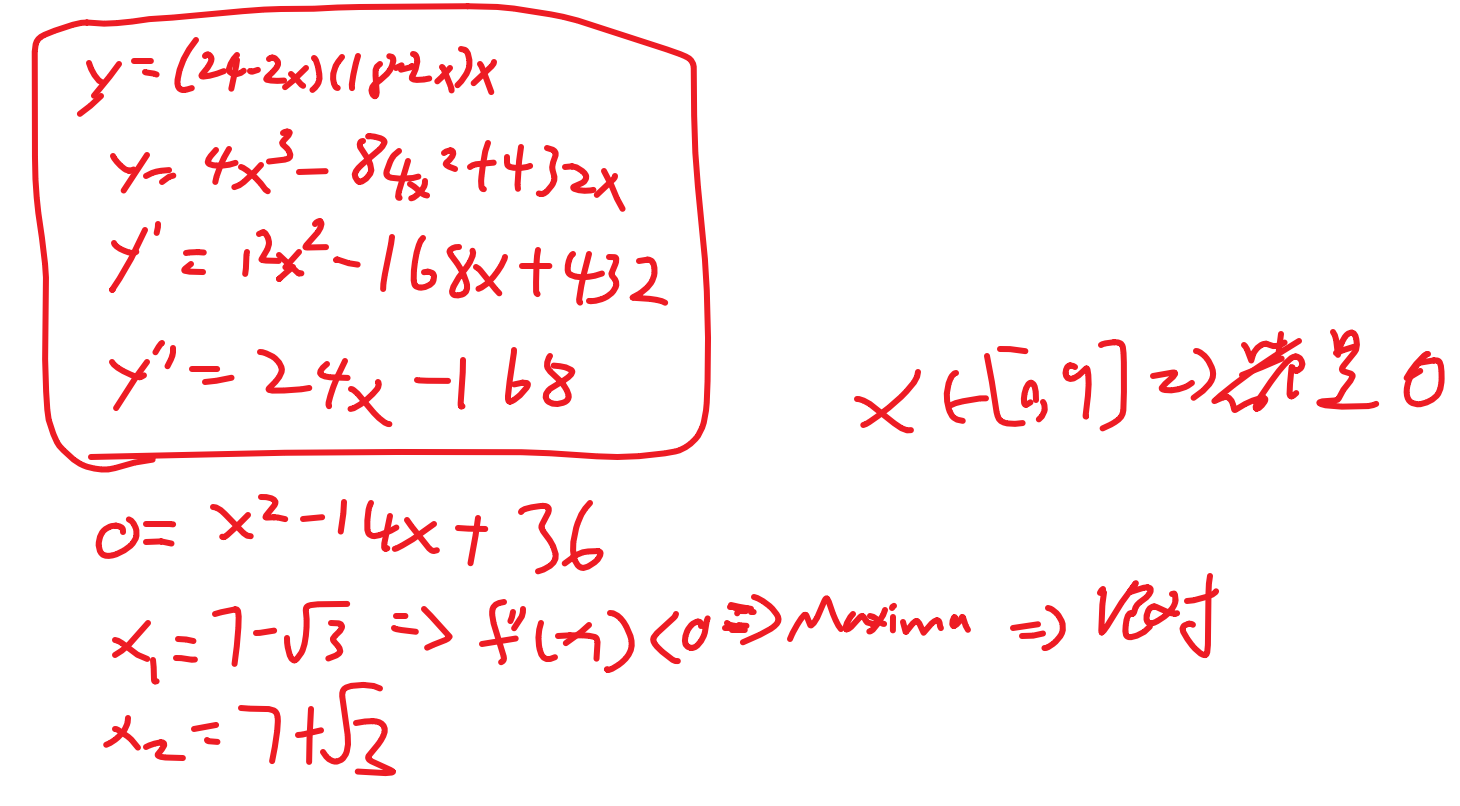 y = (24-2x)(18-2x)x
y = 4x³ - 84x² + 432x
y' = 12x² - 168x + 432
y'' = 24x - 168
x ∈ [0, 9] =>
0
0 = x² - 14x + 36
x₁ = 7 - √3 => f''(x₁) < 0 => Maximum =>
x₂ = 7 + √3